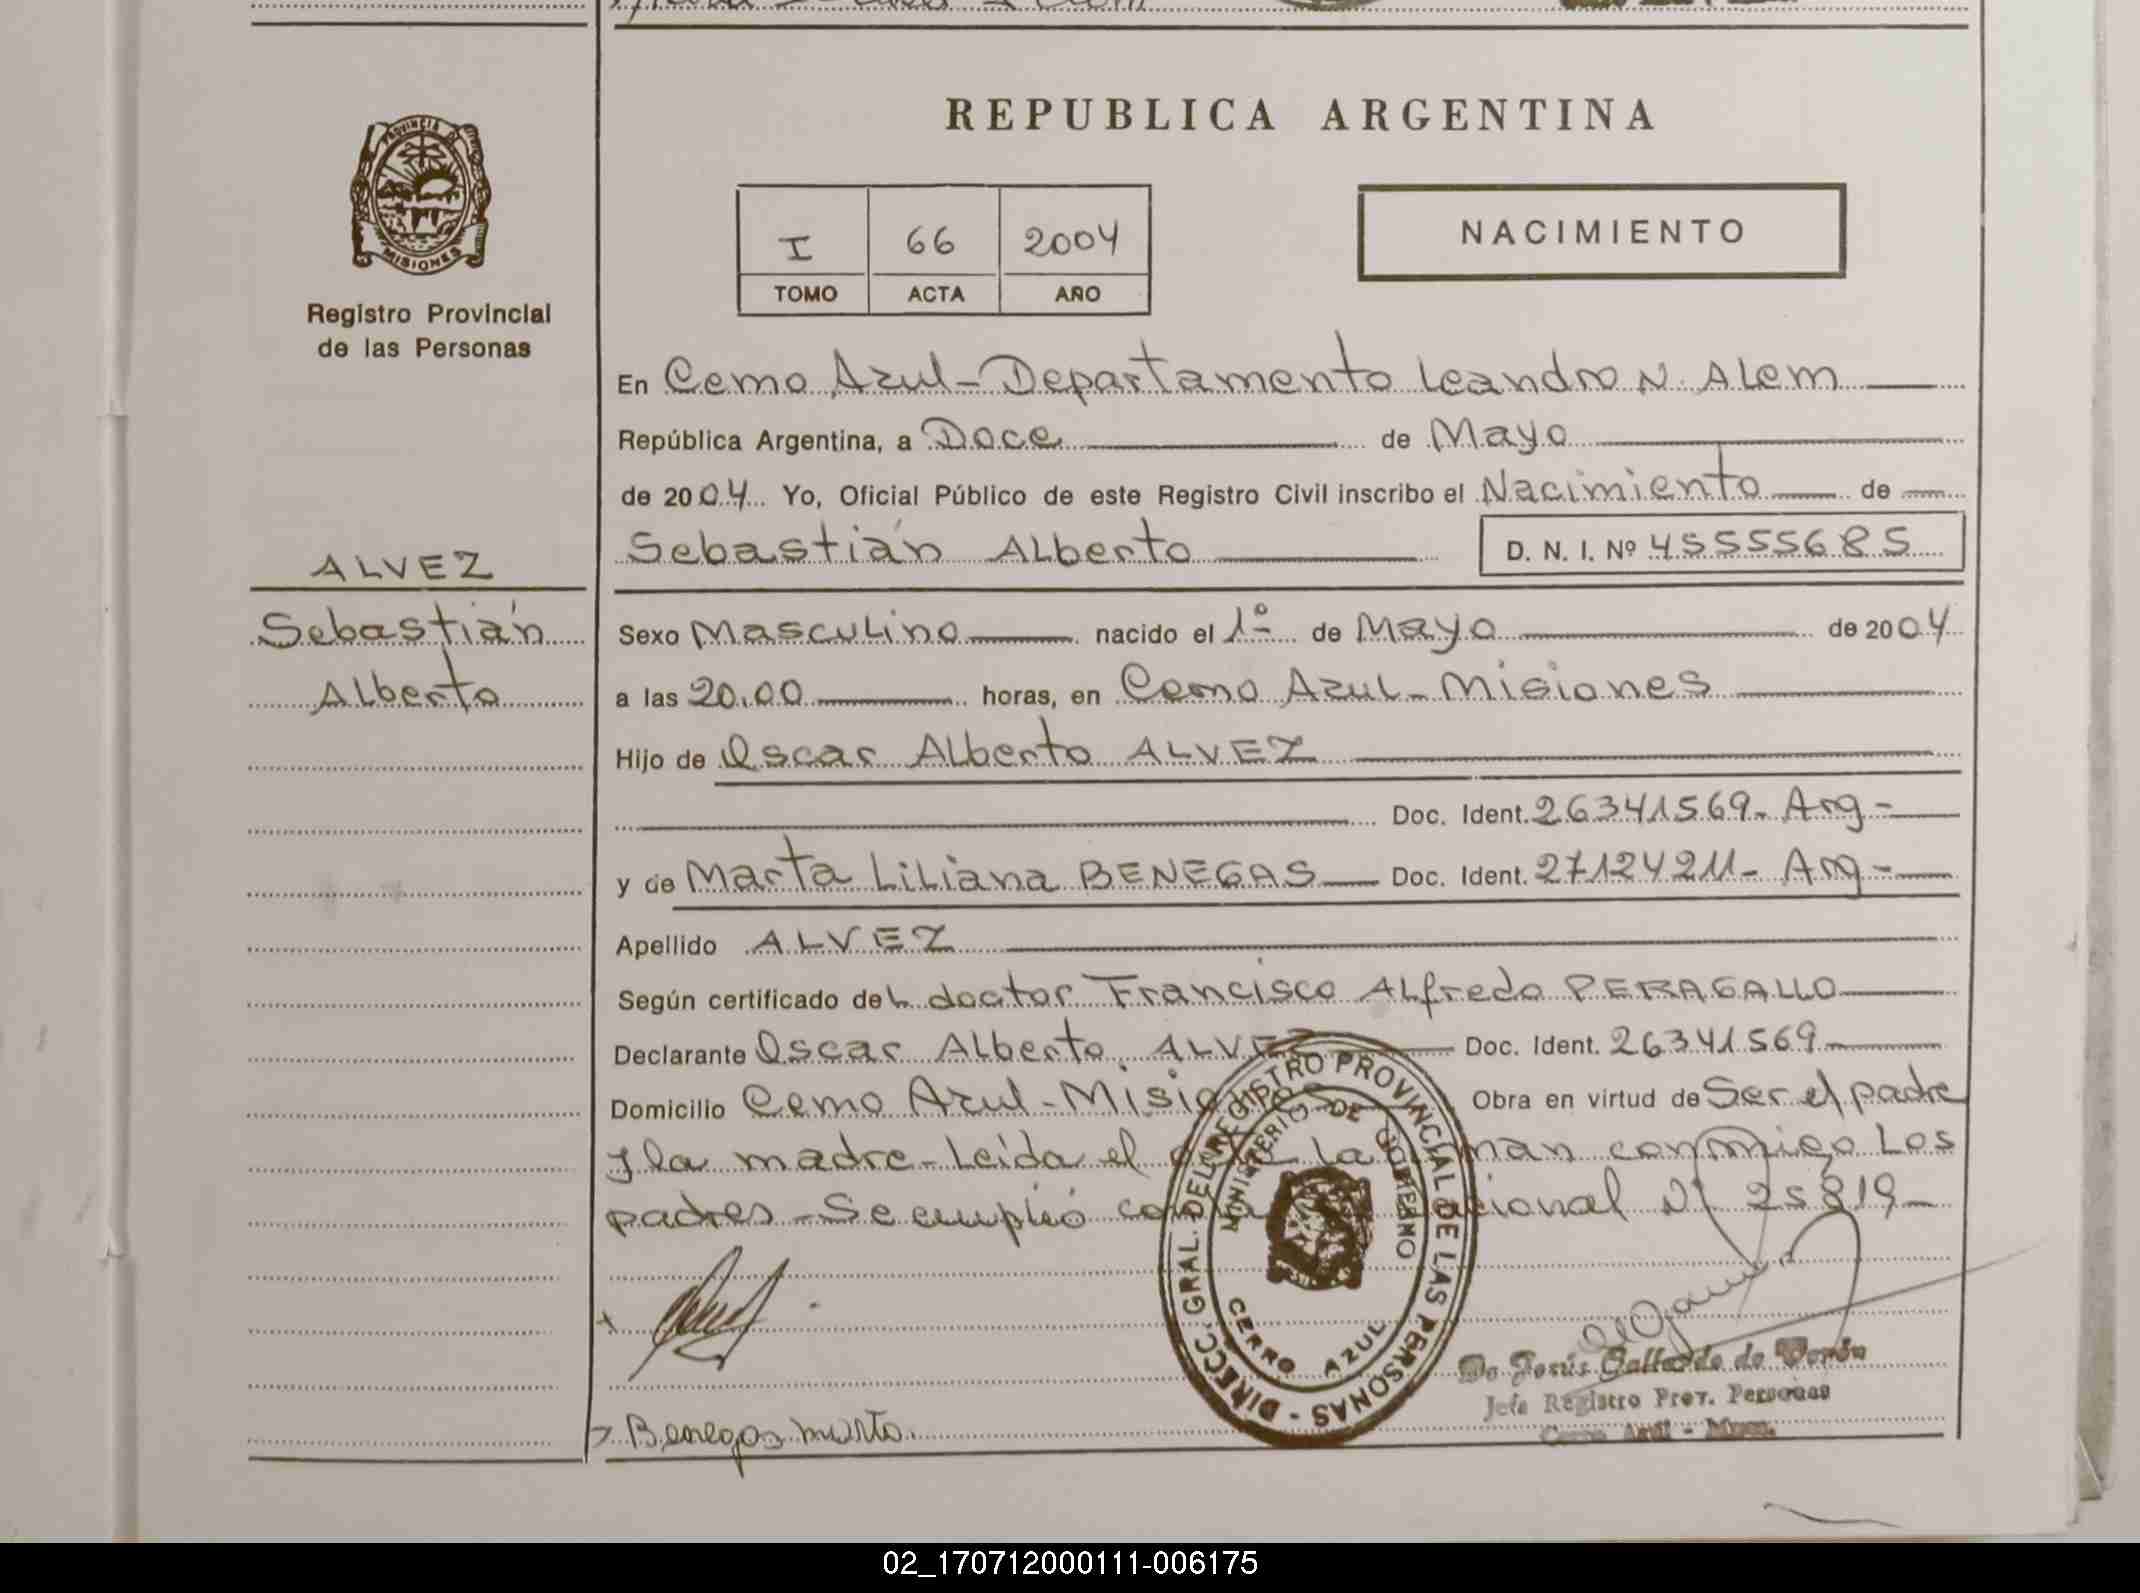 REPUBLICA ARGENTINA
PROVINCIA DE
MISIONES
Registro Provincial
de las Personas
I 66 2004
TOMO ACTA AÑO
NACIMIENTO
En Cerro Azul - Departamento Leandro N. Alem
República Argentina, a Doce de Mayo
de 2004 Yo, Oficial Público de este Registro Civil inscribo el Nacimiento de
Sebastián Alberto D. N. I. Nº 45555685
ALVEZ
Sebastián
Alberto
Sexo Masculino nacido el 1º de Mayo de 2004
a las 20.00 horas, en Cerro Azul - Misiones
Hijo de Oscar Alberto ALVEZ
Doc. Ident. 26341569 - Arg -
y de Marta Liliana BENEGAS Doc. Ident. 27124211 - Arg -
Apellido ALVEZ
Según certificado del doctor Francisco Alfredo PERAGALLO
Declarante Oscar Alberto ALVEZ Doc. Ident. 26341569
Domicilio Cerro Azul - Misiones Obra en virtud de Ser el padre
y la madre - Leida el la conmigo Los
padres - Se cumplió con Nacional Nº 25819 -
DIRECC. GRAL. DEL REGISTRO PROVINCIAL DE LAS PERSONAS -
MINISTERIO DE GOBIERNO
CERRO AZUL
Jesús Gallardo de
Jefe Registro Prov. Personas
Cerro Azul - Mnes.
Benegas Marta
02_170712000111-006175